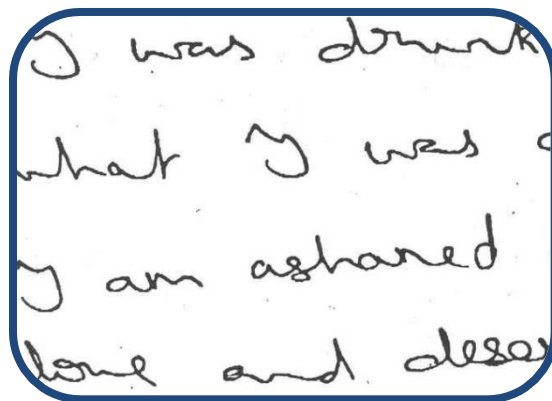 I was drunk
what I was
I am ashamed
done and